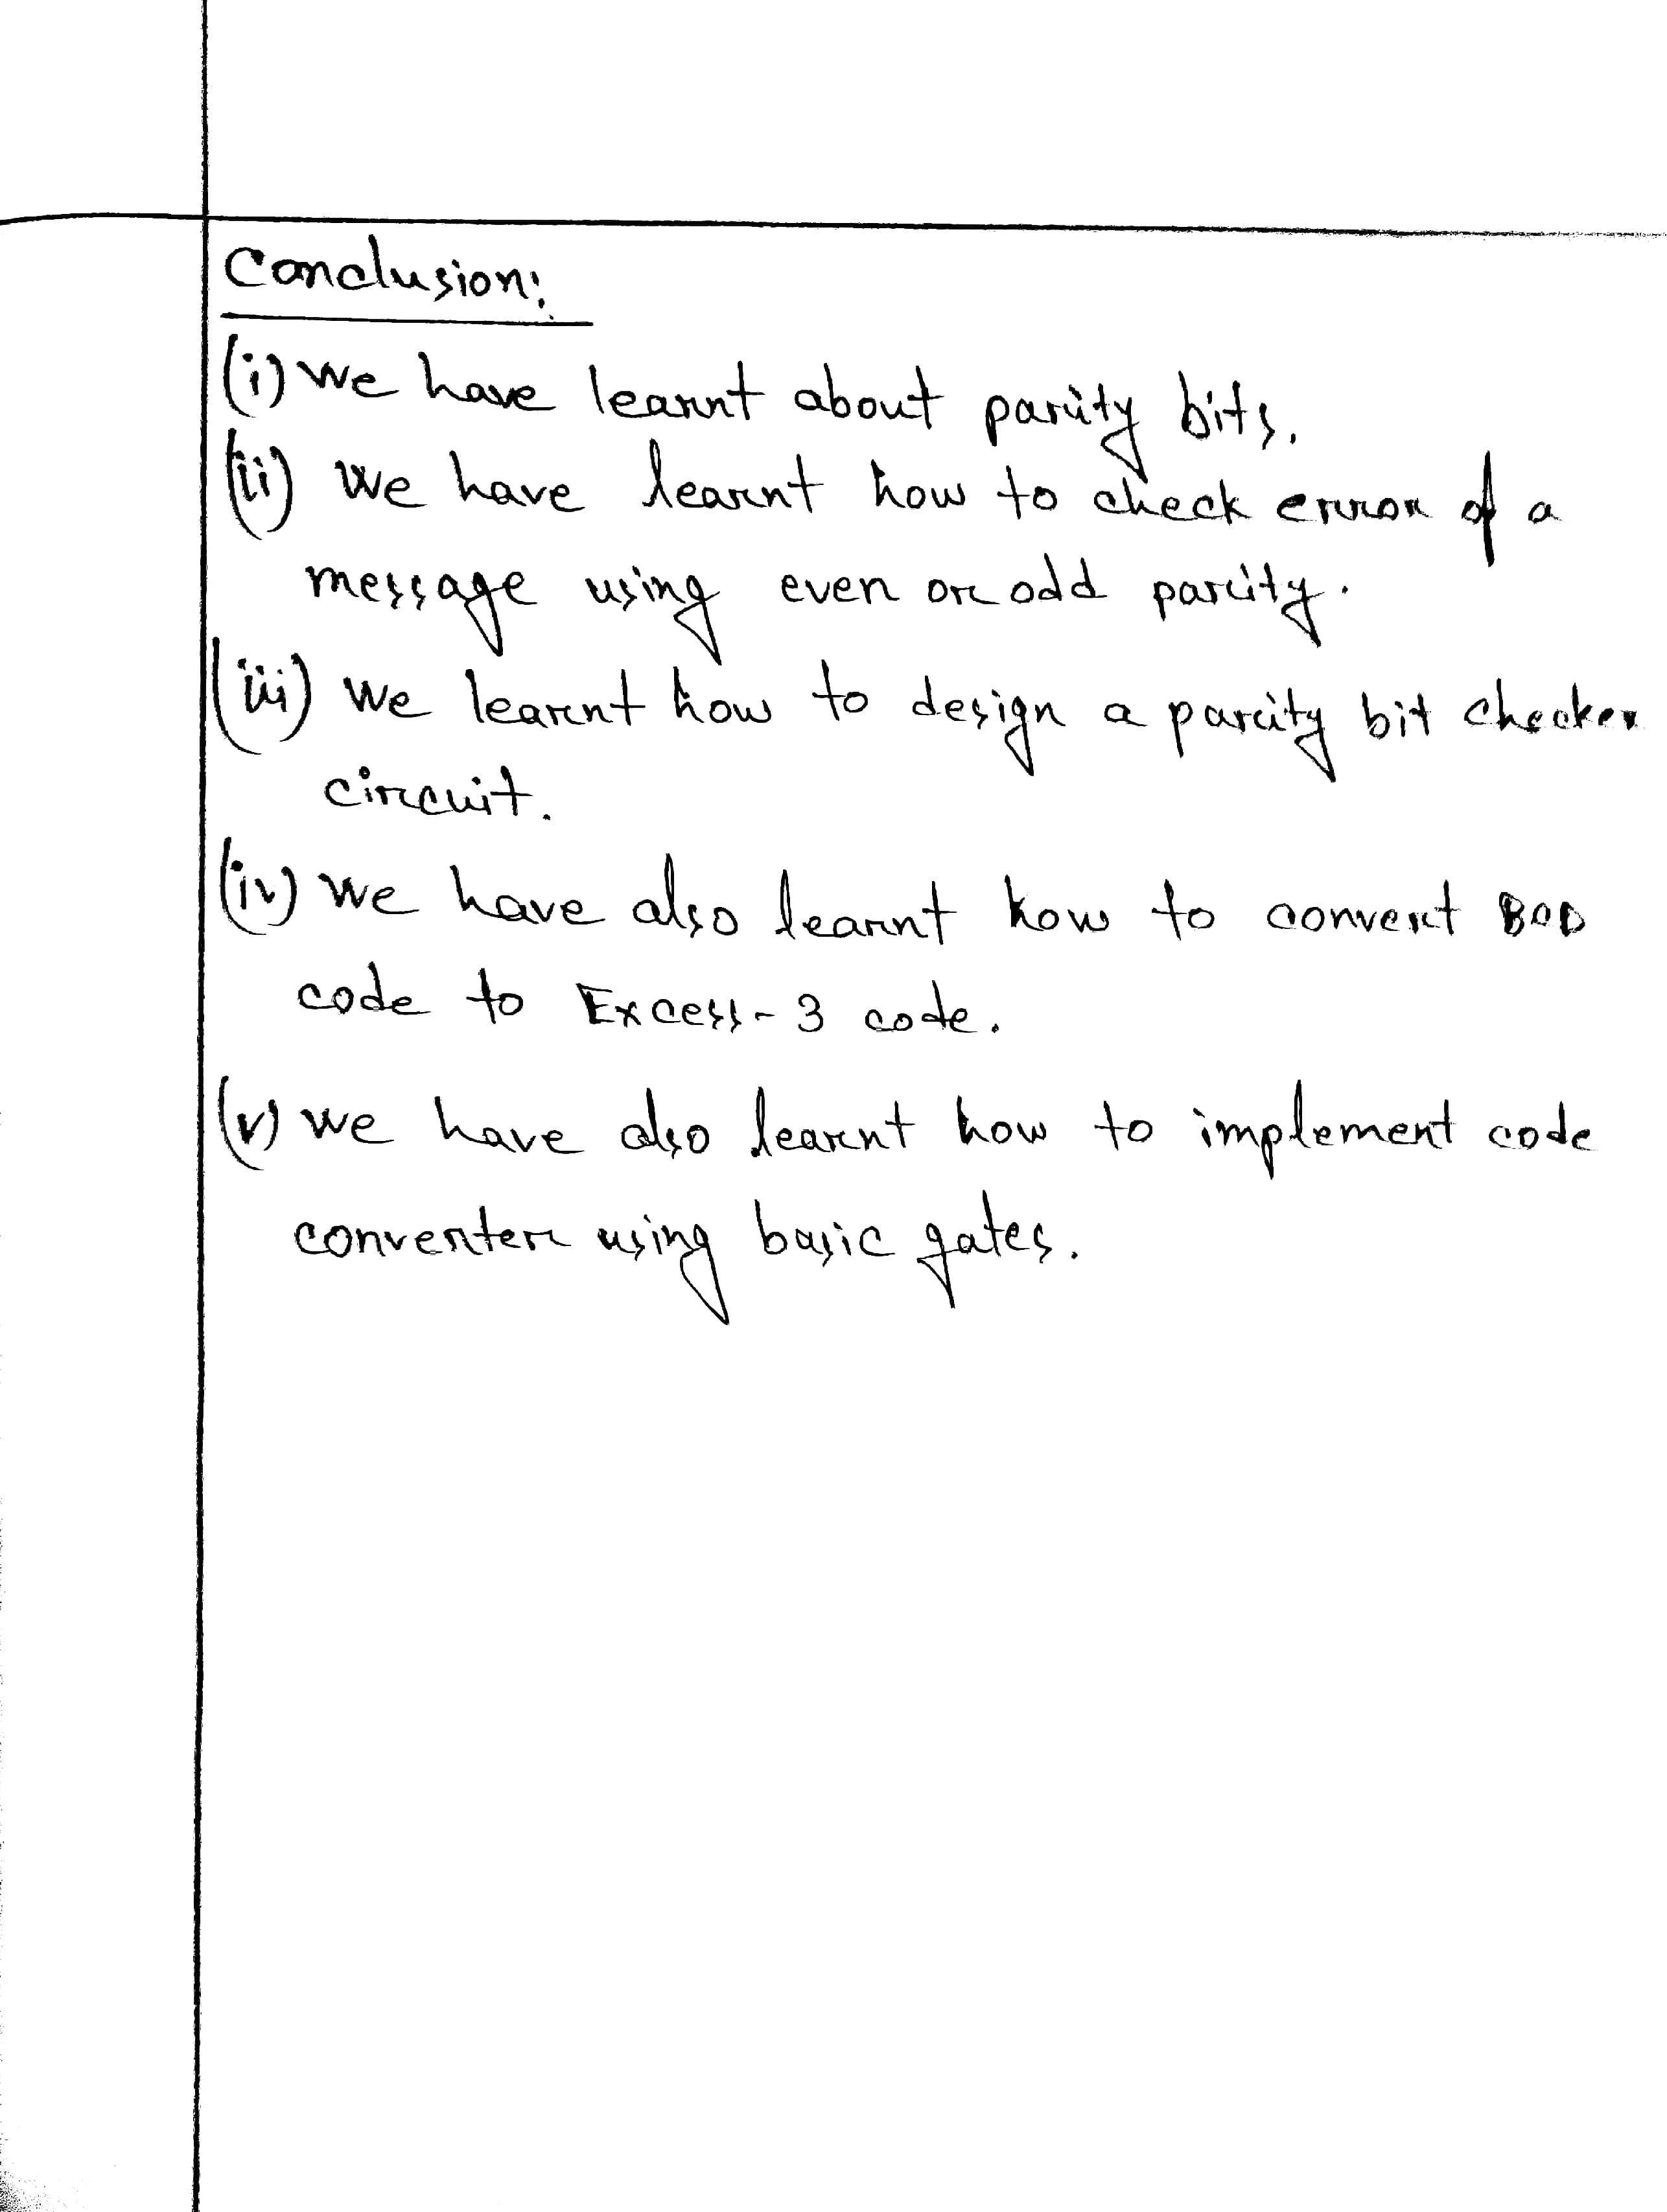 Conclusion:
(i) We have learnt about parity bits.
(ii) We have learnt how to check error of a
message using even or odd parity.
(iii) We learnt how to design a parity bit checker
circuit.
(iv) We have also learnt how to convert BCD
code to Excess-3 code.
(v) We have also learnt how to implement code
converter using basic gates.